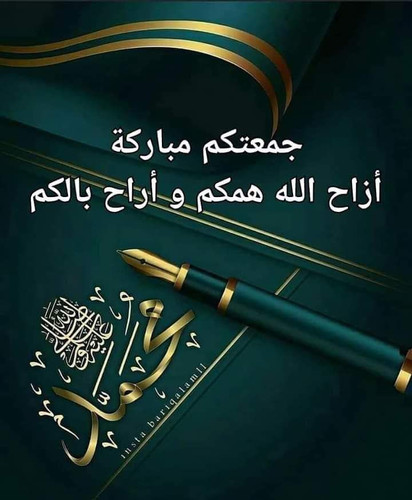 جمعتكم مباركة
أزاح الله همكم و أراح بالكم
محمد
صلى الله عليه وسلم
insta bariqalamli